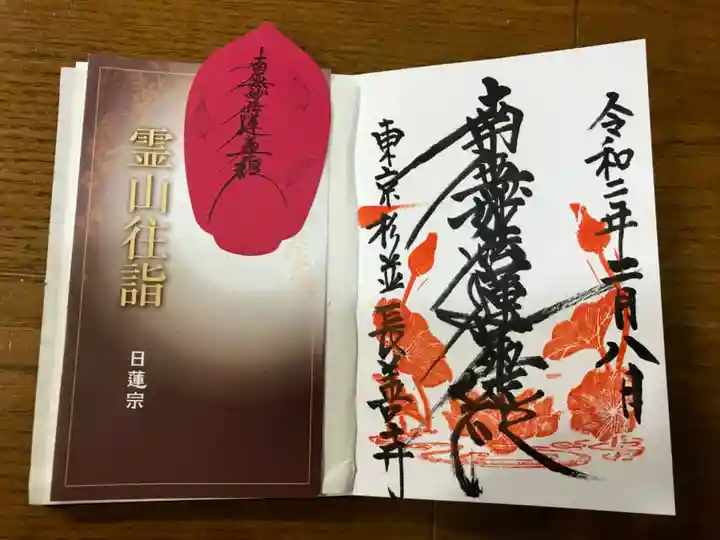 霊山往詣
日蓮宗
南無妙法蓮華経
令和二年二月八日
南無妙法蓮華経
東京杉並長善寺